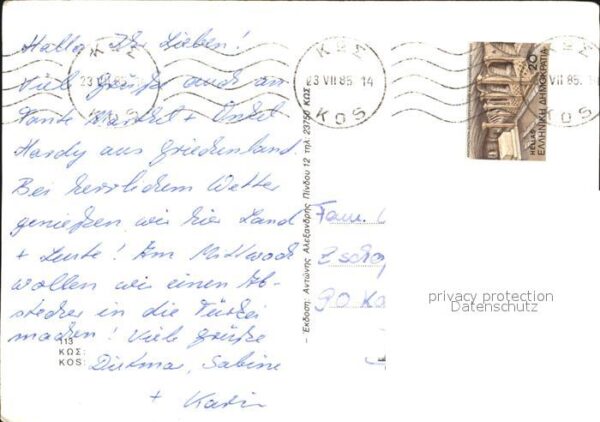 Hallo, Ihr Lieben!
Viele Grüße auch an
Tante + Onkel
Hardy aus Griechenland
Bei herrlichem Wetter
genießen wir hier Land
+ Leute! Am Mittwoch
wollen wir einen Ab-
stecher in die Türkei
machen! Viele Grüße
Dietmar, Sabine
+ Karin
113
ΚΩΣ:
KOS:
- Έκδοση: Αντώνης Αλεξανδρής Πίνδου 12 τηλ. 23750 ΚΩΣ
ΚΩΣ
23 VII 85
KOS
ΚΩΣ
23 VII 85 14
KOS
ΚΩΣ
VII 85 14
KOS
20
ΕΛΛΗΝΙΚΗ ΔΗΜΟΚΡΑΤΙΑ
HELLAS
Fam.
Zschop
90 Ka
privacy protection
Datenschutz